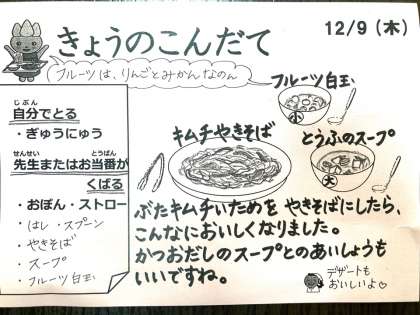 きょうのこんだて
12/9（木）
フルーツは、りんごとみかんなのん
じぶん
自分でとる
・ぎゅうにゅう
せんせい とうばん
先生またはお当番が
くばる
・おぼん・ストロー
・はし ・スプーン
・やきそば
・スープ
・フルーツ白玉
フルーツ白玉
小
キムチやきそば
とうふのスープ
大
ぶたキムチいためを やきそばにしたら、
こんなにおいしくなりました。
かつおだしのスープとのあいしょうも
いいですね。
デザートも
おいしいよ♡